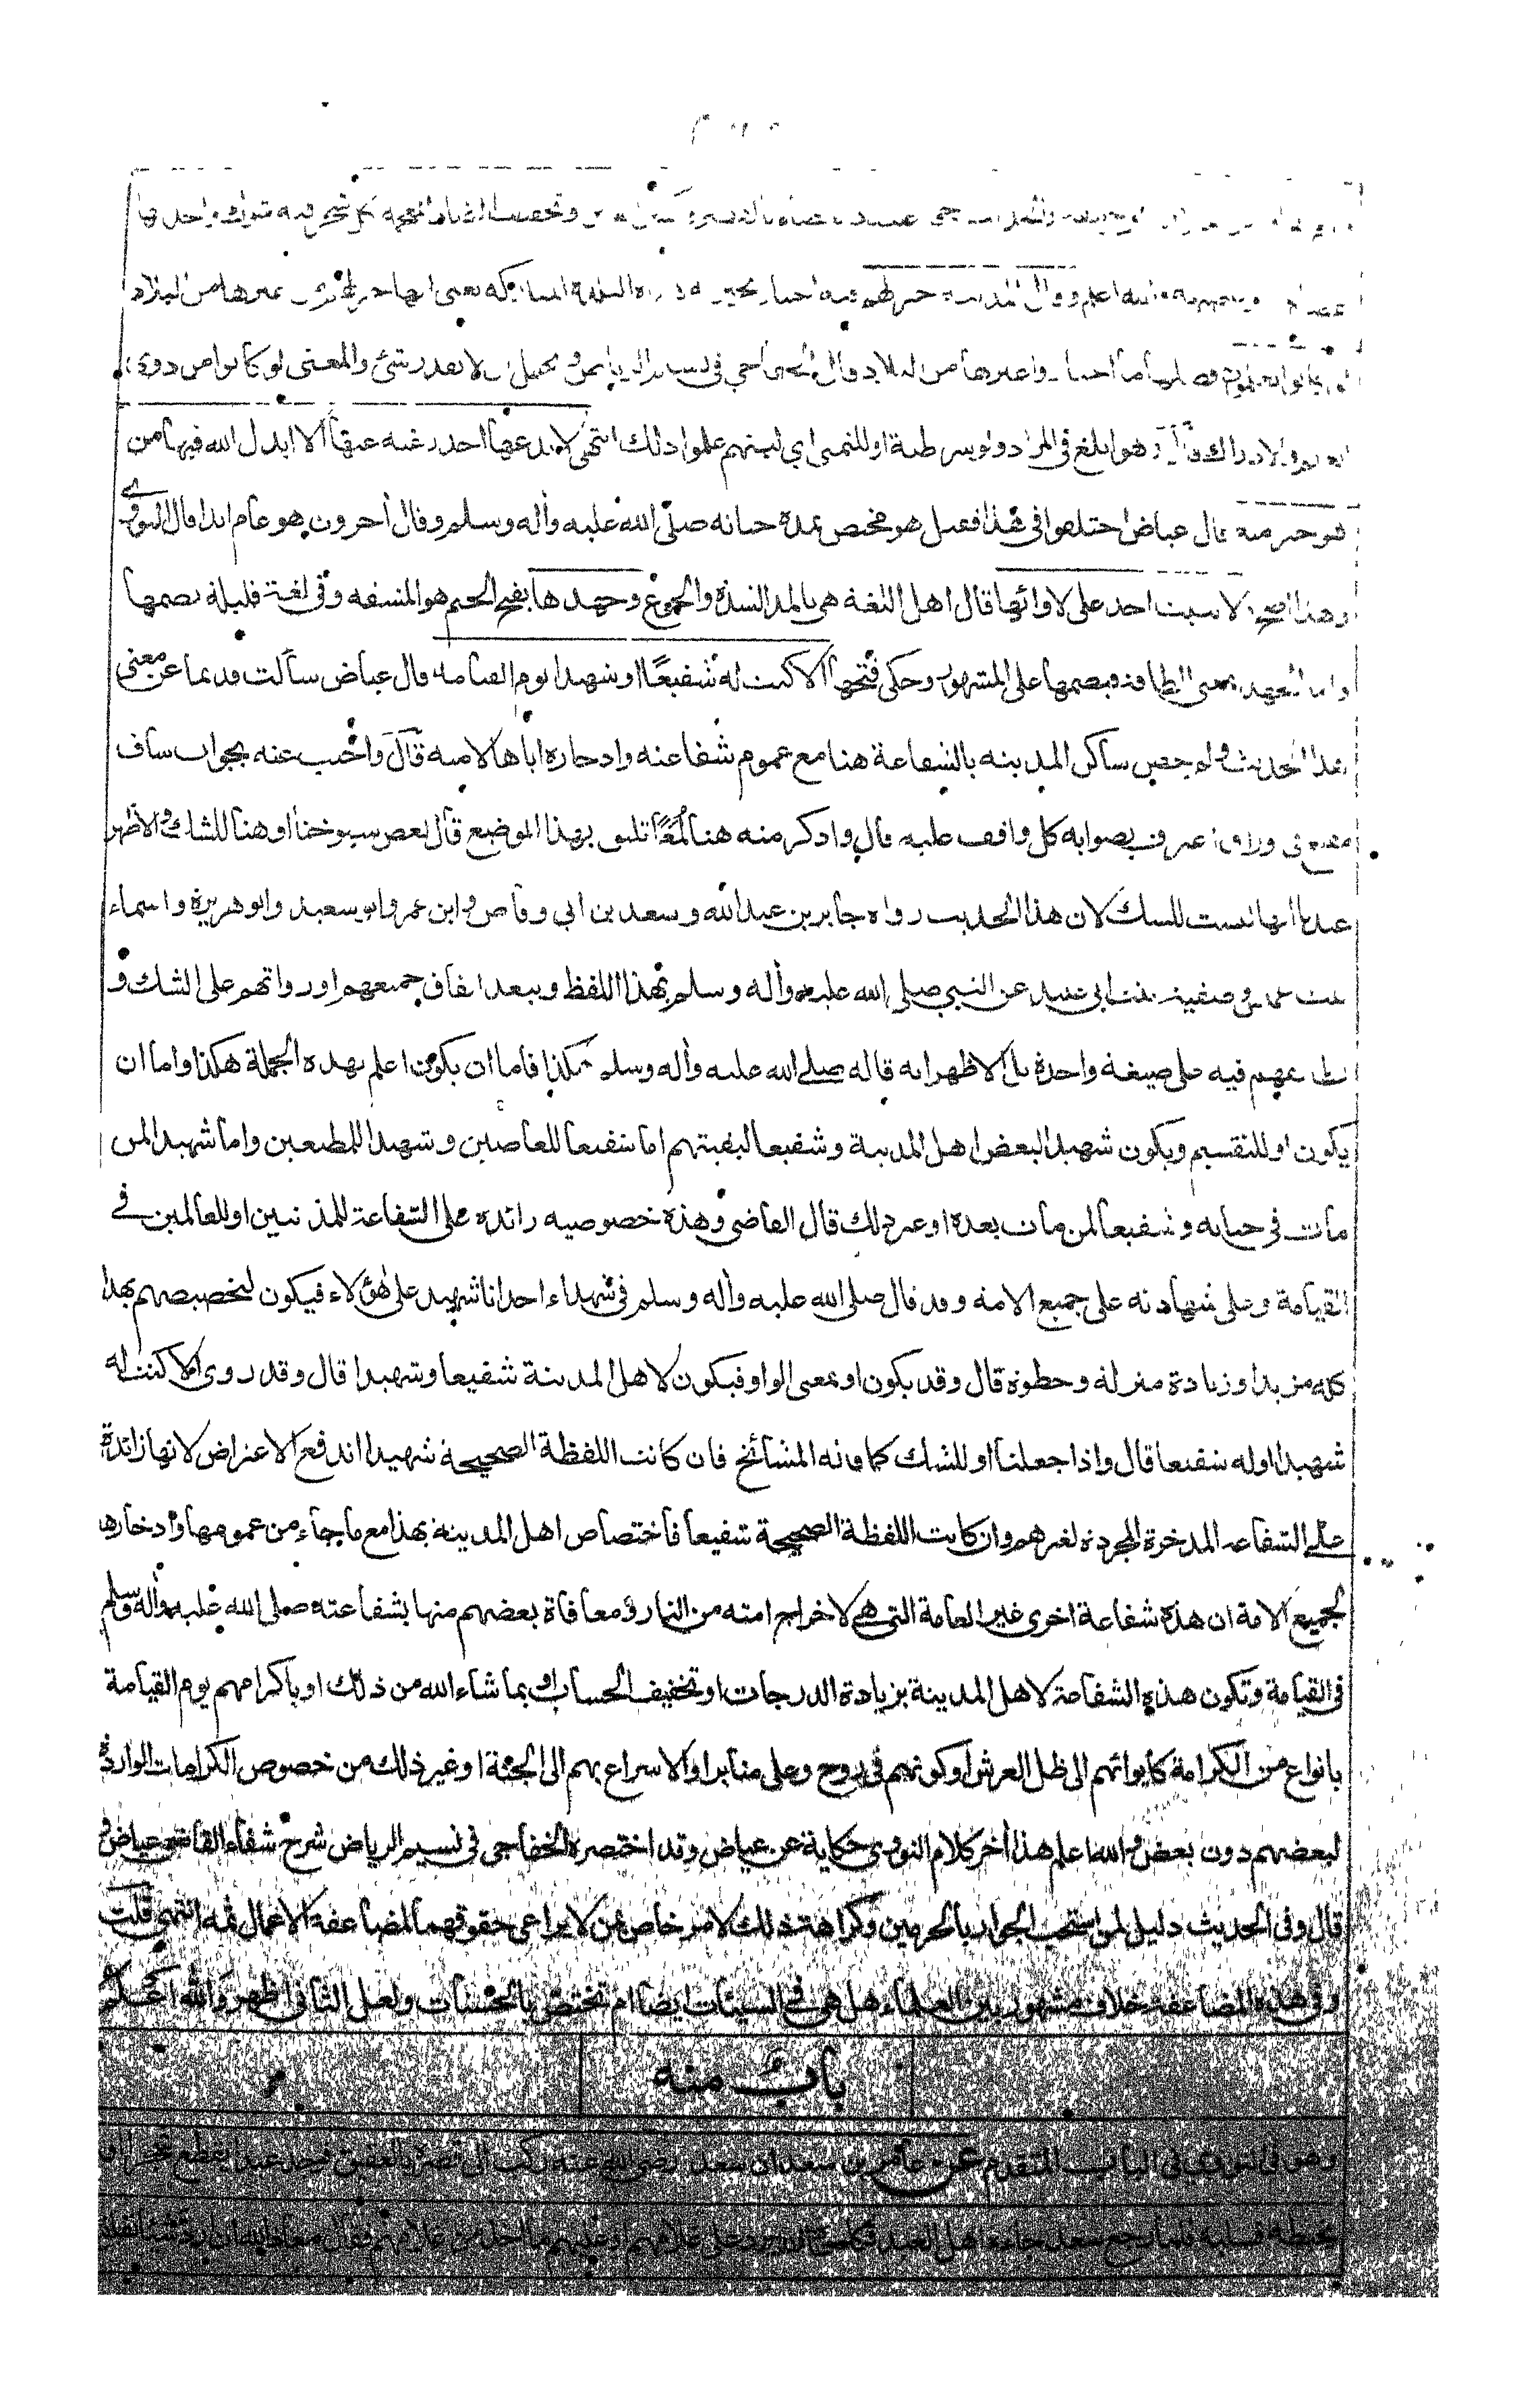 وتحصل الضاد المعجمة كل شجر فيه شوك واحدها
والله اعلم وقال المدينة خير لهم فيه اخبار يعني غيرها من البلاد
واغيرها من البلاد قال الخفاجي في نسيم الرياض والمعنى لو كانوا من ذوي
العلم والادراك قال وهو ابلغ في المراد ولو شرطية او للتمني اي ليتهم علموا ذلك انتهى لا يدعها احد رغبة عنها الا ابدل الله فيها من
هو خير منه قال عياض اختلفوا في هذا فقيل هو مختص بمدة حياته صلى الله عليه وآله وسلم وقال آخرون هو عام ابدا قال النووي
وهذا اصح لا يثبت احد على لأوائها قال اهل اللغة هي بالمد الشدة والجوع وجهدها بفتح الجيم هو المشقة وفي لغة قليلة بضمها
واما الجهد بمعنى الطاقة فبضمها على المشهور وحكي فتحها الا كنت له شفيعًا او شهيدا يوم القيامة قال عياض سألت قديما عن معنى
هذا الحديث ولم خص ساكن المدينة بالشفاعة هنا مع عموم شفاعته وادخاره اياها لامته قَالَ واجيب عنه بجواب شاف
مقنع في اوراق اعترف بصوابه كل واقف عليه قال واذكر منه هنا لُمَعًا تليق بهذا الموضع قال بعض شيوخنا او هنا للشك والاظهر
عندنا انها ليست للشك لان هذا الحديث رواه جابر بن عبد الله وسعد بن ابي وقاص وابن عمر وابو سعيد وابو هريرة واسماء
بنت عميس وصفية بنت ابي عبيد عن النبي صلى الله عليه وآله وسلم بهذا اللفظ ويبعد اتفاق جميعهم او رواتهم على الشك و
تطابقهم فيه على صيغة واحدة بل الاظهر انه قاله صلى الله عليه وآله وسلم هكذا فاما ان يكون اعلم بهذه الجملة هكذا واما ان
يكون او للتقسيم ويكون شهيدا لبعض اهل المدينة وشفيعا لبقيتهم اما شفيعا للعاصين وشهيدا للمطيعين واما شهيدا لمن
مات في حياته وشفيعا لمن مات بعده او غير ذلك قال القاضي وهذه خصوصية زائدة على الشفاعة للمذنبين او للعالمين في
القيامة وعلى شهادته على جميع الامة وقد قال صلى الله عليه وآله وسلم في شهداء احد انا شهيد على هؤلاء فيكون لتخصيصهم بهذا
كله مزيدا وزيادة منزلة وحظوة قال وقد يكون او بمعنى الواو فيكون لاهل المدينة شفيعا وشهيدا قال وقد روى الا كنت له
شهيدا او له شفيعا قال واذا جعلنا او للشك كما قاله المشائخ فان كانت اللفظة الصحيحة شهيدا اندفع الاعتراض لانها زائدة
على الشفاعة المدخرة المجردة لغيرهم وان كانت اللفظة الصحيحة شفيعا فاختصاص اهل المدينة بهذا مع ما جاء من عمومها وادخارها
لجميع الامة ان هذه شفاعة اخرى غير العامة التي هي لاخراج امته من النار ومعافاة بعضهم منها بشفاعته صلى الله عليه وآله وسلم
في القيامة وتكون هذه الشفاعة لاهل المدينة بزيادة الدرجات او تخفيف الحساب او بما شاء الله من ذلك او باكرامهم يوم القيامة
بانواع من الكرامة كايوائهم الى ظل العرش او كونهم في روح وعلى منابر او الاسراع بهم الى الجنة او غير ذلك من خصوص الكرامات الواردة
لبعضهم دون بعض والله اعلم هذا آخر كلام النووي حكاية عن عياض وقد اختصره الخفاجي في نسيم الرياض شرح شفاء القاضي عياض و
قال وفي الحديث دليل لمن استحب الجوار بالحرمين وكراهة ذلك لامر خاص لمن لا يراعي حقوقهما لمضاعفة الاعمال ثمه انتهى قلت
وفي هذه المضاعفة خلاف مشهور بين العلماء هل هي في السيئات ايضا ام تختص بالحسنات ولعل الثاني اظهر والله اعلم
باب منه
وهو في النووي في الباب المتقدم عن عامر بن سعد ان سعدا رضي الله عنه ركب الى قصره بالعقيق فوجد عبدا يقطع شجرا او
يخبطه فسلبه فلما رجع سعد جاءه اهل العبد فكلموه ان يرد على غلامهم او عليهم ما اخذ من غلامهم فقال معاذ الله ان ارد شيئا نفلنيه